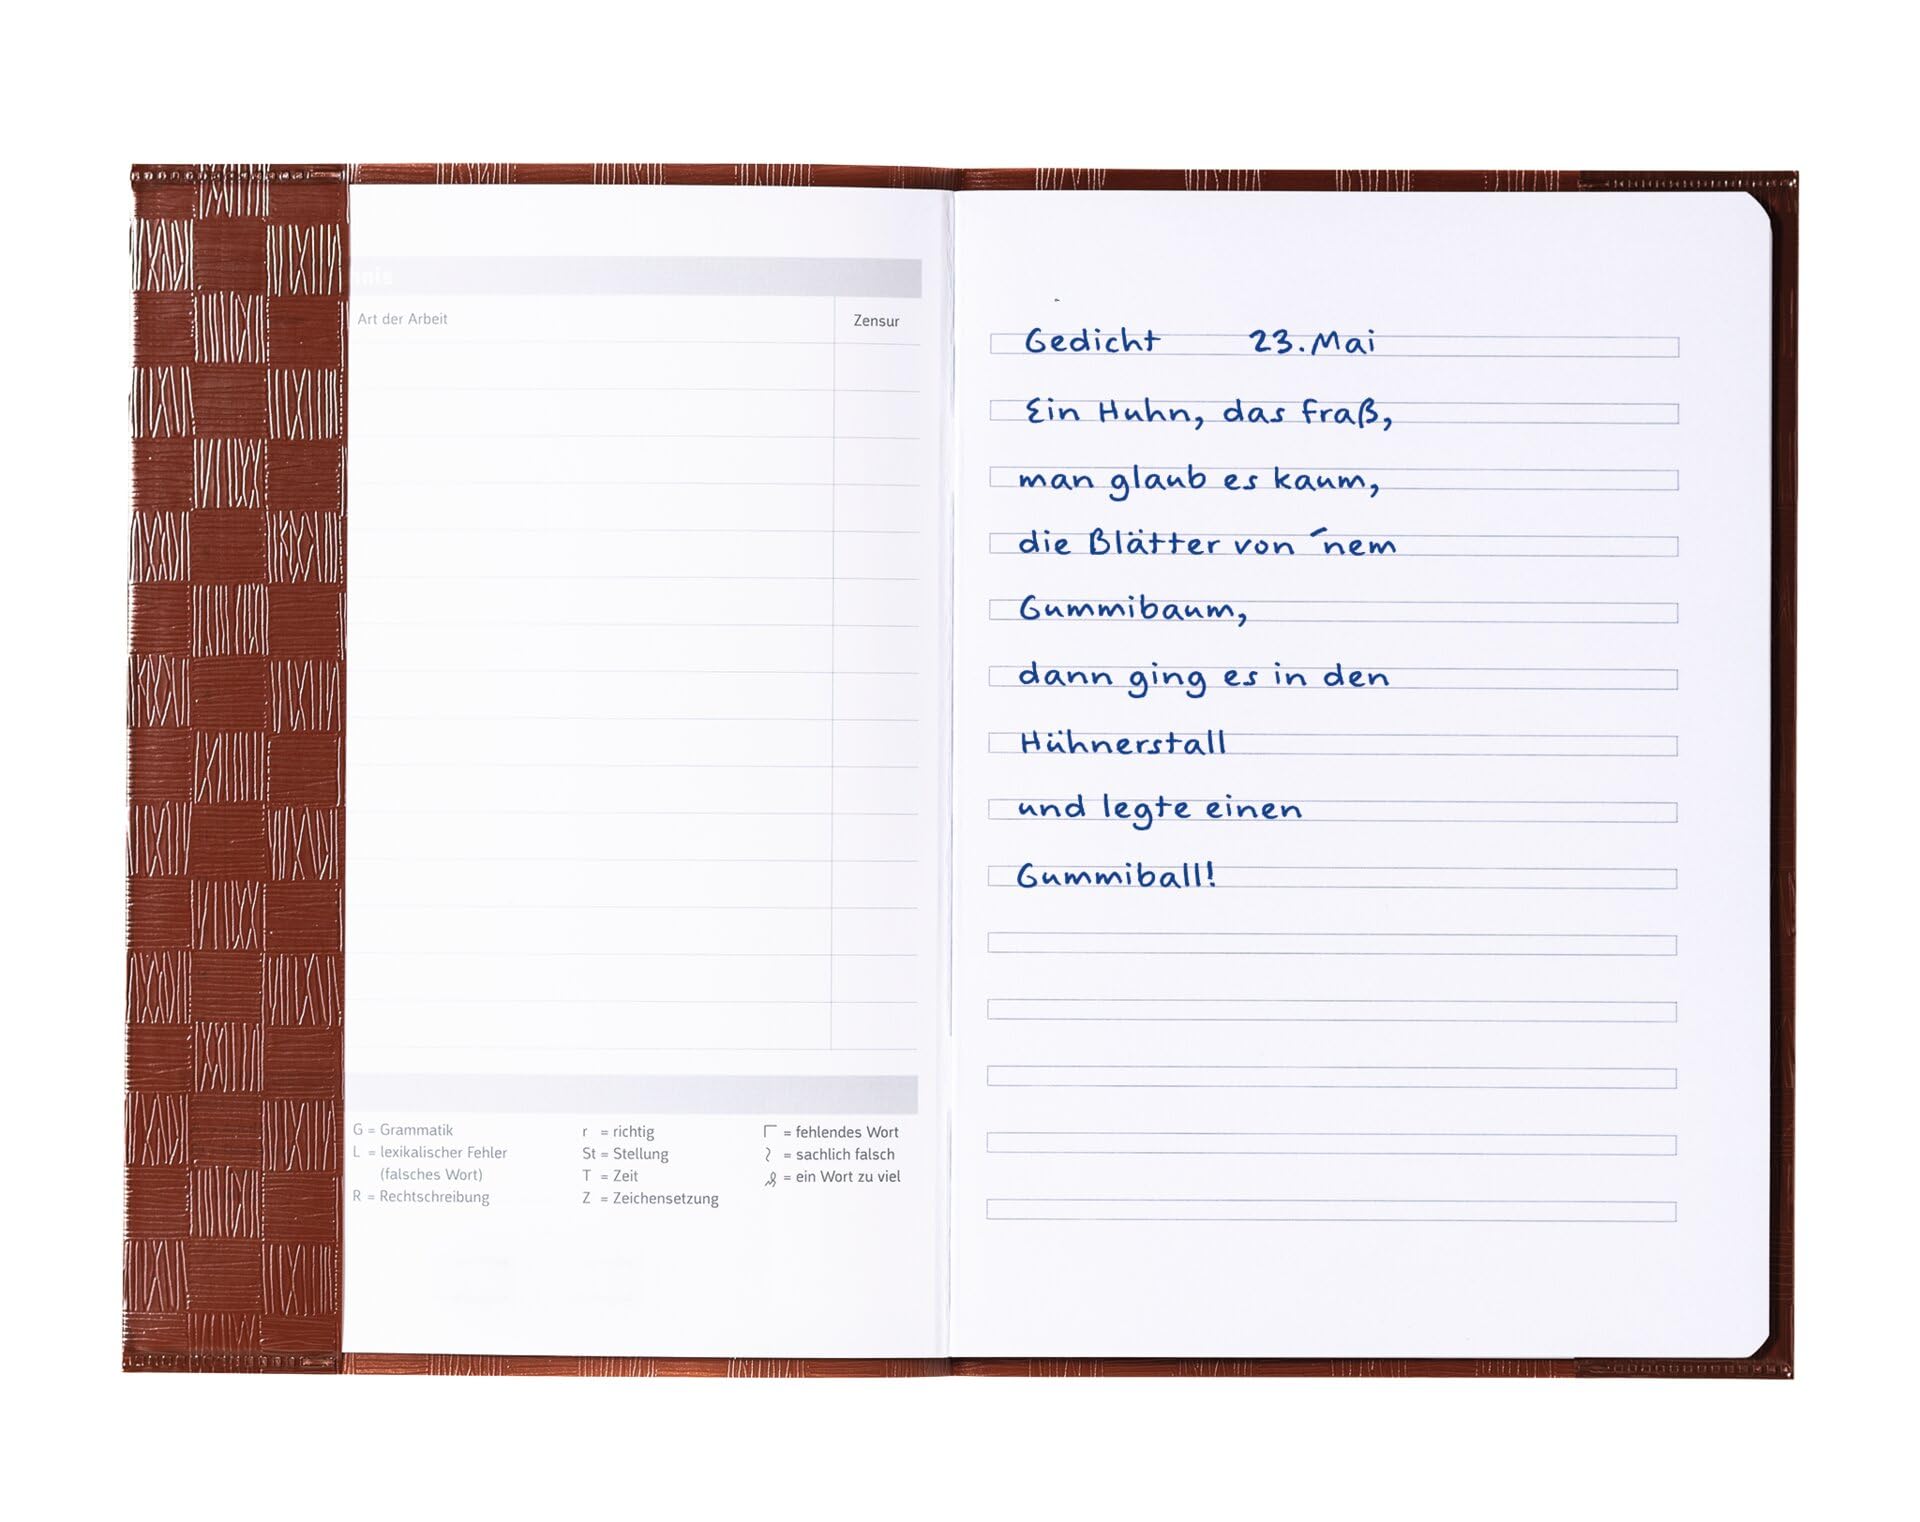 Art der Arbeit
Zensur
G = Grammatik
L = lexikalischer Fehler
(falsches Wort)
R = Rechtschreibung
r = richtig
St = Stellung
T = Zeit
Z = Zeichensetzung
= fehlendes Wort
= sachlich falsch
= ein Wort zu viel
Gedicht 23. Mai
Ein Huhn, das fraß,
man glaub es kaum,
die Blätter von ´nem
Gummibaum,
dann ging es in den
Hühnerstall
und legte einen
Gummiball!